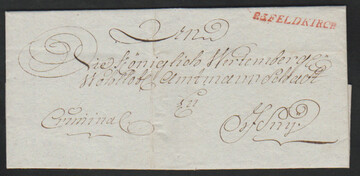 R3FELDKIRCH
An
Die Königlich Wirtemberg.
Wohllobl. Amtmannschaft
zu
Criminal
Isny